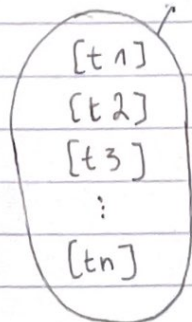 [t1]
[t2]
[t3]
⋮
[tn]